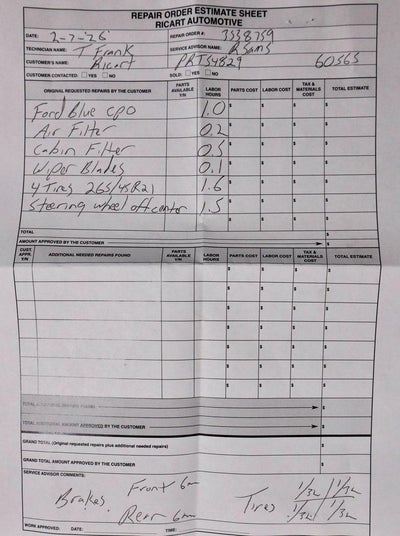 REPAIR ORDER ESTIMATE SHEET
RICART AUTOMOTIVE
DATE: 2-7-26 REPAIR ORDER #: 3538759
TECHNICIAN NAME: T Frank SERVICE ADVISOR NAME:
CUSTOMER'S NAME: Ricart PRT54829 60565
CUSTOMER CONTACTED: YES NO SOLD: YES NO
ORIGINAL REQUESTED REPAIRS BY THE CUSTOMER PARTS AVAILABLE Y/N LABOR HOURS PARTS COST LABOR COST TAX & MATERIALS COST TOTAL ESTIMATE
Ford Blue CPO 1.0 $ $ $ $
Air Filter 0.2 $ $ $ $
Cabin Filter 0.5 $ $ $ $
Wiper Blades 0.1 $ $ $ $
4 Tires 265/45R21 1.6 $ $ $ $
Steering wheel off center 1.5 $ $ $ $
TOTAL $
AMOUNT APPROVED BY THE CUSTOMER $
CUST. APPR. Y/N ADDITIONAL NEEDED REPAIRS FOUND PARTS AVAILABLE Y/N LABOR HOURS PARTS COST LABOR COST TAX & MATERIALS COST TOTAL ESTIMATE
$ $ $ $
$ $ $ $
$ $ $ $
$ $ $ $
$ $ $ $
$ $ $ $
$ $ $ $
TOTAL ADDITIONAL REPAIRS FOUND $
TOTAL ADDITIONAL AMOUNT APPROVED BY THE CUSTOMER $
GRAND TOTAL (Original requested repairs plus additional needed repairs) $
GRAND TOTAL AMOUNT APPROVED BY THE CUSTOMER $
SERVICE ADVISOR COMMENTS:
Brakes Front 6mm Tires 1/32 1/32
Rear 6mm 1/32 1/32
WORK APPROVED: DATE: TIME: